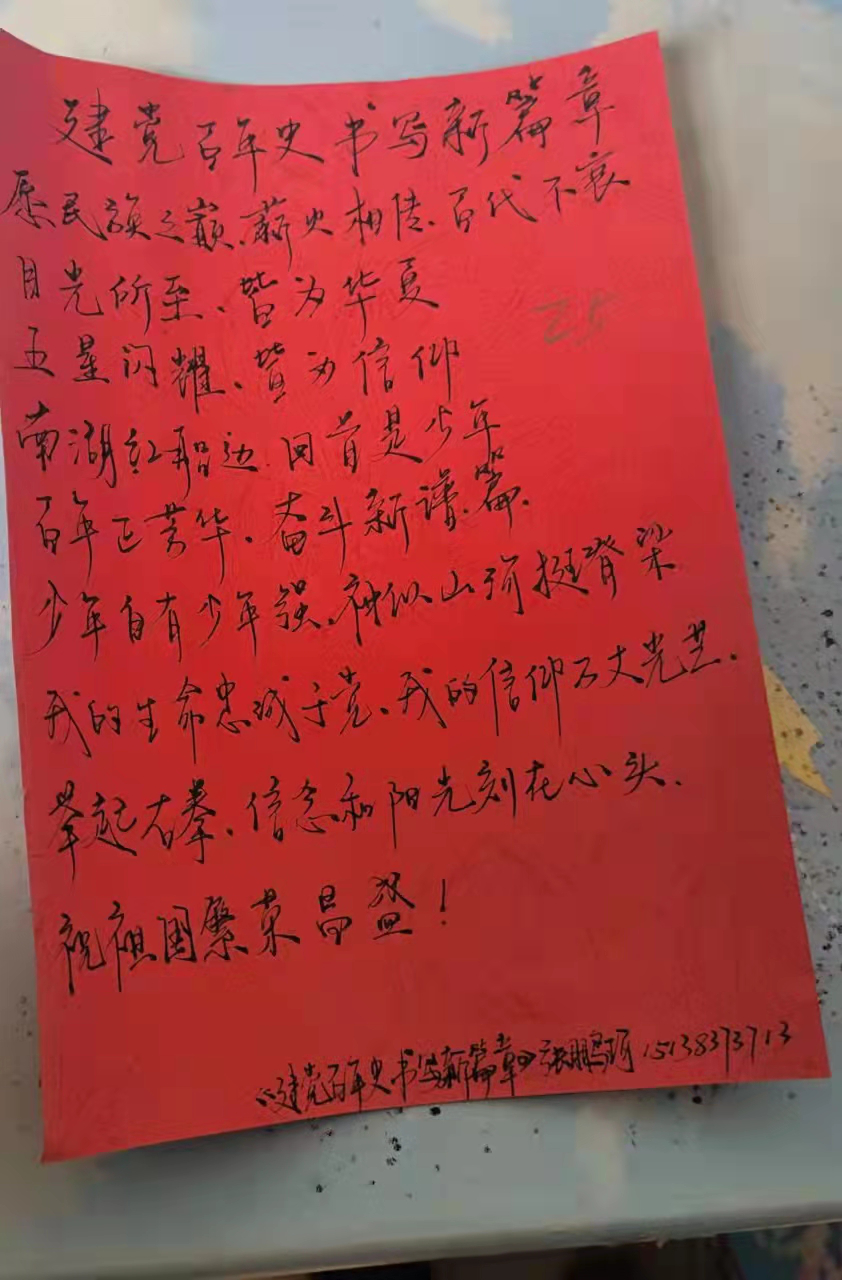 建党百年史书写新篇章
愿民族之巅、薪火相传、百代不衰
目光所至、皆为华夏
五星闪耀、皆为信仰
南湖红船边、回首是少年
百年正芳华、奋斗新谱篇、
少年自有少年强、神似山河挺脊梁
我的生命忠诚于党、我的信仰万丈光芒、
举起右拳、信念和阳光刻在心头、
祝祖国繁荣昌盛!
《建党百年史书写新篇章》张鹏珂 15138373713
25